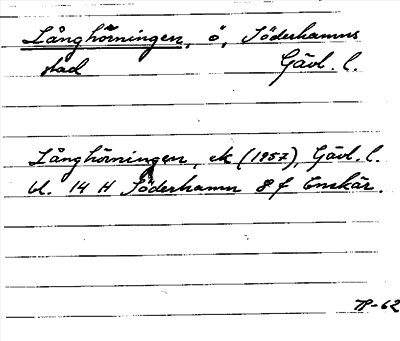 Långhörningen, ö, Söderhamns
stad Gävl. l.
Långhörningen, ek (1957), Gävl. l.
bl. 14 H Söderhamn 8 f Enskär.
TP-62